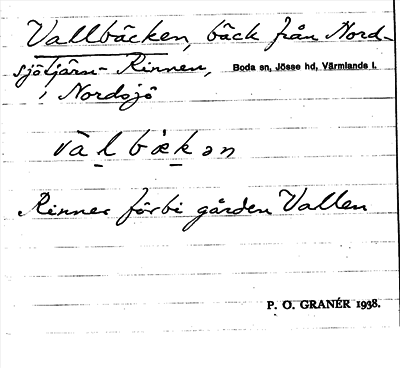 Vallbäcken, bäck från Nord-
sjötjärn - Rinnen, Boda sn, Jösse hd, Värmlands l.
i Nordsjö
và l bæ̀k ən
Rinner förbi gården Vallen
P. O. GRANÉR 1938.